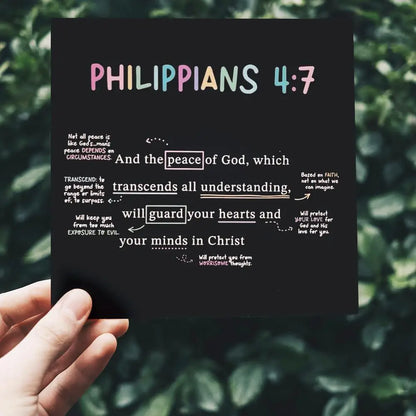 PHILIPPIANS 4:7
Not all peace is
like God's...man's
peace DEPENDS on
CIRCUMSTANCES.
And the peace of God, which
TRANSCEND: to
go beyond the
range or limits
of, to surpass.
transcends all understanding,
Based on FAITH,
not on what we
can imagine.
Will keep you
from too much
EXPOSURE TO EVIL.
will guard your hearts and
Will protect
YOUR LOVE for
God and His
love for you.
your minds in Christ
Will protect you from
WORRISOME thoughts.